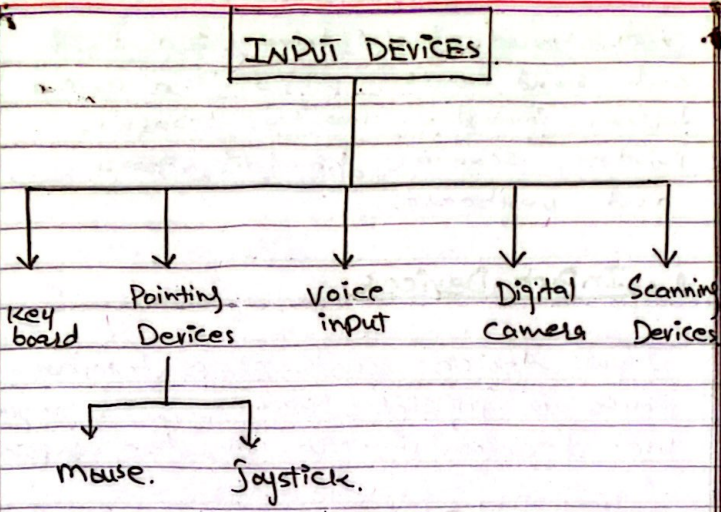 INPUT DEVICES.
Key
board
Pointing
Devices
Voice
input
Digital
Camera
Scanning
Devices
Mouse.
Joystick.